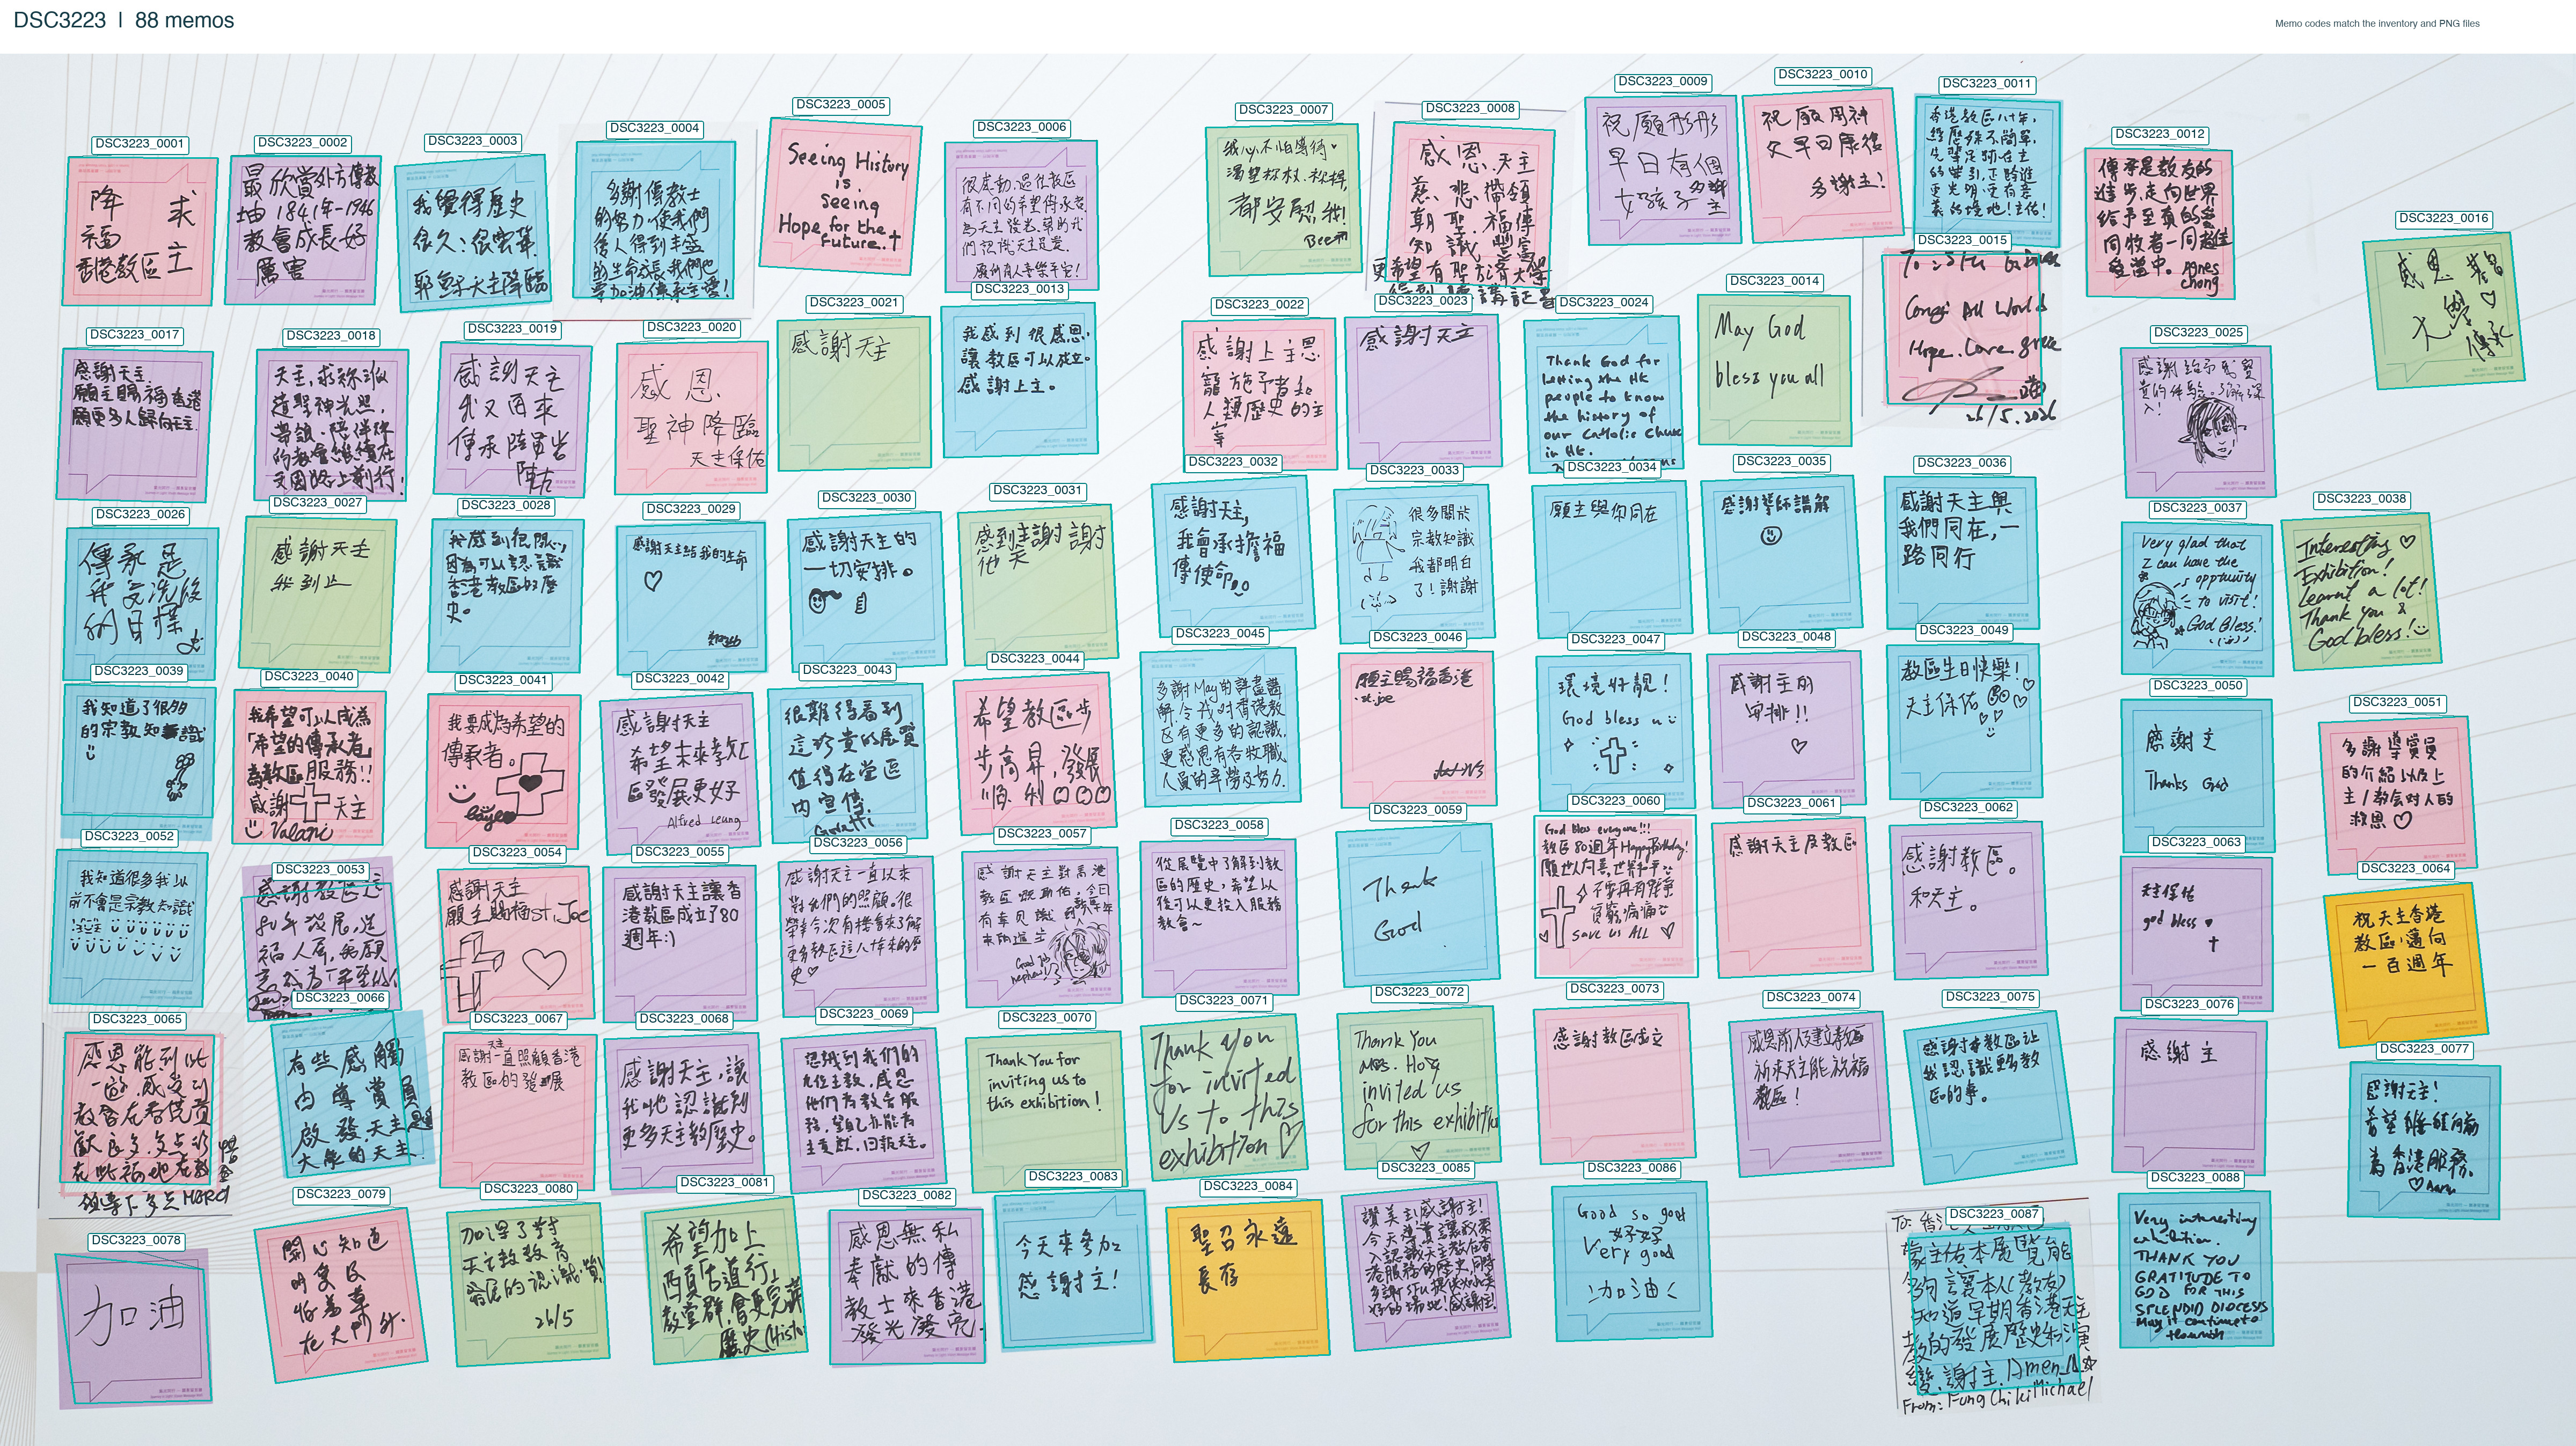 DSC3223 | 88 memos
Memo codes match the inventory and PNG files
DSC3223_0001
降 求
福
香港教區 主
DSC3223_0002
最欣賞外方傳教
1841年-1946
教會成長好
厲害
DSC3223_0003
我覺得歷史
很久:很宏偉
耶穌天主降臨
DSC3223_0004
多謝傳教士
的努力使我們
後人得到丰盛
的生命成長我們也
要加油傳承主愛!
DSC3223_0005
Seeing History
is
Seeing
Hope for the
future.†
DSC3223_0006
很感動,過往教區
有不同的希望傳承者
為天主發光,幫助我
們認識天主是愛.
願所有人喜樂平安!
DSC3223_0007
都安慰我!
DSC3223_0008
感恩.天主
慈悲帶領
朝聖.福傳
知識豐富
更希望有聖方濟大學
DSC3223_0009
祝願彤彤
早日有個
女孩子多謝主
DSC3223_0010
祝願周神
父早日康復
多謝主!
DSC3223_0011
香港教區八十年,
經歷殊不簡單,
先輩足跡在主
的帶引,正踏進
更光明更有意
義的境地!主佑!
DSC3223_0012
傳承是教友的
進步走向世界
給予至真的愛
同牧者一同走進
愛當中。Agnes
Chong
DSC3223_0016
感恩
大學♡
傳承
DSC3223_0015
Hope. Love. grace
26/5.2026
DSC3223_0014
May God
bless you all
DSC3223_0013
我感到很感恩,
讓教區可以成立。
感謝上主。
DSC3223_0017
感謝天主
願主賜福香港
願更多人歸向天主.
DSC3223_0018
天主,求祢派
遣聖神光照,
帶領、陪伴祢
的教會繼續在
前行!
DSC3223_0019
感謝天主
我又再來
傳承
DSC3223_0020
感恩.
聖神降臨
天主保佑
DSC3223_0021
感謝天主
DSC3223_0022
感謝上主恩
寵施予者和
人類歷史的主
宰
DSC3223_0023
感謝天主
DSC3223_0024
Thank God for
letting the HK
people to know
the history of
our Catholic Church
in HK.
DSC3223_0025
感謝給予我寶
貴的体驗。了解深
入!
DSC3223_0026
傳承是
我受洗後
的目標
DSC3223_0027
感謝天主
DSC3223_0028
我感到很開心,
因為可以認識
香港教區的歷
史。
DSC3223_0029
感謝天主給我的生命
♡
DSC3223_0030
感謝天主的
一切安排。
DSC3223_0031
感到主謝謝
他
DSC3223_0032
感謝天主,
我會承擔福
傳使命
DSC3223_0033
很多關於
宗教知識
我都明白
了!謝謝
DSC3223_0034
願主與你同在
DSC3223_0035
感謝導師講解
DSC3223_0036
感謝天主與
我們同在,一
路同行
DSC3223_0037
Very glad that
I can have the
opptunity
to visit!
God Bless!
DSC3223_0038
Interesting ♡
Exhibition!
Learnt a lot!
Thank you &
God bless!
DSC3223_0039
我知道了很多
的宗教知識
DSC3223_0040
我希望可以成為
「希望的傳承者」
為教區服務!!
感謝 天主
Valani
DSC3223_0041
我要成為希望的
傳承者。
DSC3223_0042
感謝天主
希望未來教
區發展更好
Alfred Leung
DSC3223_0043
很難得看到
這珍貴的展覽
值得在堂區
內宣傳.
DSC3223_0044
希望教區步
步高昇,發展
順利
DSC3223_0045
多謝May的詳盡講
解,令我對香港教
區有更多的認識.
更感恩有各牧職
人員的辛勞及努力.
DSC3223_0046
願主賜福香港
.st.joe
DSC3223_0047
環境好靚!
God bless u
DSC3223_0048
感謝主的
安排!!
♡
DSC3223_0049
教區生日快樂!
天主保佑
DSC3223_0050
感謝主
Thanks God
DSC3223_0051
多謝導賞員
的介紹以及上
主/教会对人的
救恩♡
DSC3223_0052
我知道很多我以
前不會是宗教知識
DSC3223_0053
感謝教區這
80年發展,造
福人羣,
DSC3223_0054
感謝天主
願主賜福St.Joe
DSC3223_0055
感謝天主讓香
港教區成立了80
週年:)
DSC3223_0056
感謝天主一直以來
對我們的照顧。很
榮幸今次有機會來了解
更多教區這八十年來的歷
史♡
DSC3223_0057
感謝天主對香港
教區
Good job
nephew!
DSC3223_0058
從展覽中了解到教
區的歷史,希望以
後可以更投入服務
教會~
DSC3223_0059
Thank
God
DSC3223_0060
God bless everyone!!!
教區80週年HappyBirthday!
願世人向善,世界和平
不要再有戰爭
貧窮病痛
SAVE US ALL ♡
DSC3223_0061
感謝天主及教區
DSC3223_0062
感謝教區。
和天主。
DSC3223_0063
天主保佑
god bless ♥
†
DSC3223_0064
祝天主香港
教區邁向
一百週年
DSC3223_0065
感恩能到此
教會在香港貢
獻良多
DSC3223_0066
有些感觸
由導賞員
啟發,天主是
大家的天主.
DSC3223_0067
天主
感謝一直照顧香港
教區的發展
DSC3223_0068
感謝天主,讓
我哋認識到
更多天主教歷史。
DSC3223_0069
認識到我們的
九位主教,感恩
他們為教會服
務,望自己亦能為
主貢獻,回報天主。
DSC3223_0070
Thank You for
inviting us to
this exhibition!
DSC3223_0071
Thank you
for invited
us to this
exhibition♡
DSC3223_0072
Thank You
Mrs. Hong
invited us
for this exhibition
♡
DSC3223_0073
感謝教區成立
DSC3223_0074
感恩前人建立教區
祈求天主能祝福
教區!
DSC3223_0075
感謝教區讓
我認識更多教
區的事。
DSC3223_0076
感謝主
DSC3223_0077
感謝天主!
希望繼續向前
為香港服務.
♡
DSC3223_0078
加油
DSC3223_0079
開心知道
在大門外.
DSC3223_0080
加深了對
天主教教育
發展的認識,讚!
26/5
DSC3223_0081
希望加上
西貢古道行,
教堂群會更完善
歷史(Histo
DSC3223_0082
感恩無私
奉獻的傳
教士來香港
發光發亮.
DSC3223_0083
今天來參加
感謝主!
DSC3223_0084
聖召永遠
長存
DSC3223_0085
讚美主!感謝主!
DSC3223_0086
Good so good
好好好
Very good
加油
DSC3223_0087
蒙主佑本展覽能
夠讓本人(教友)
知道早期香港天主
教的發展歷史和演
變.謝主.Amen
From: Fung Chi Ki Michael
DSC3223_0088
Very interesting
exhibition.
THANK YOU
GRATITUDE TO
GOD FOR THIS
SPLENDID DIOCESE
May it continue to
flourish